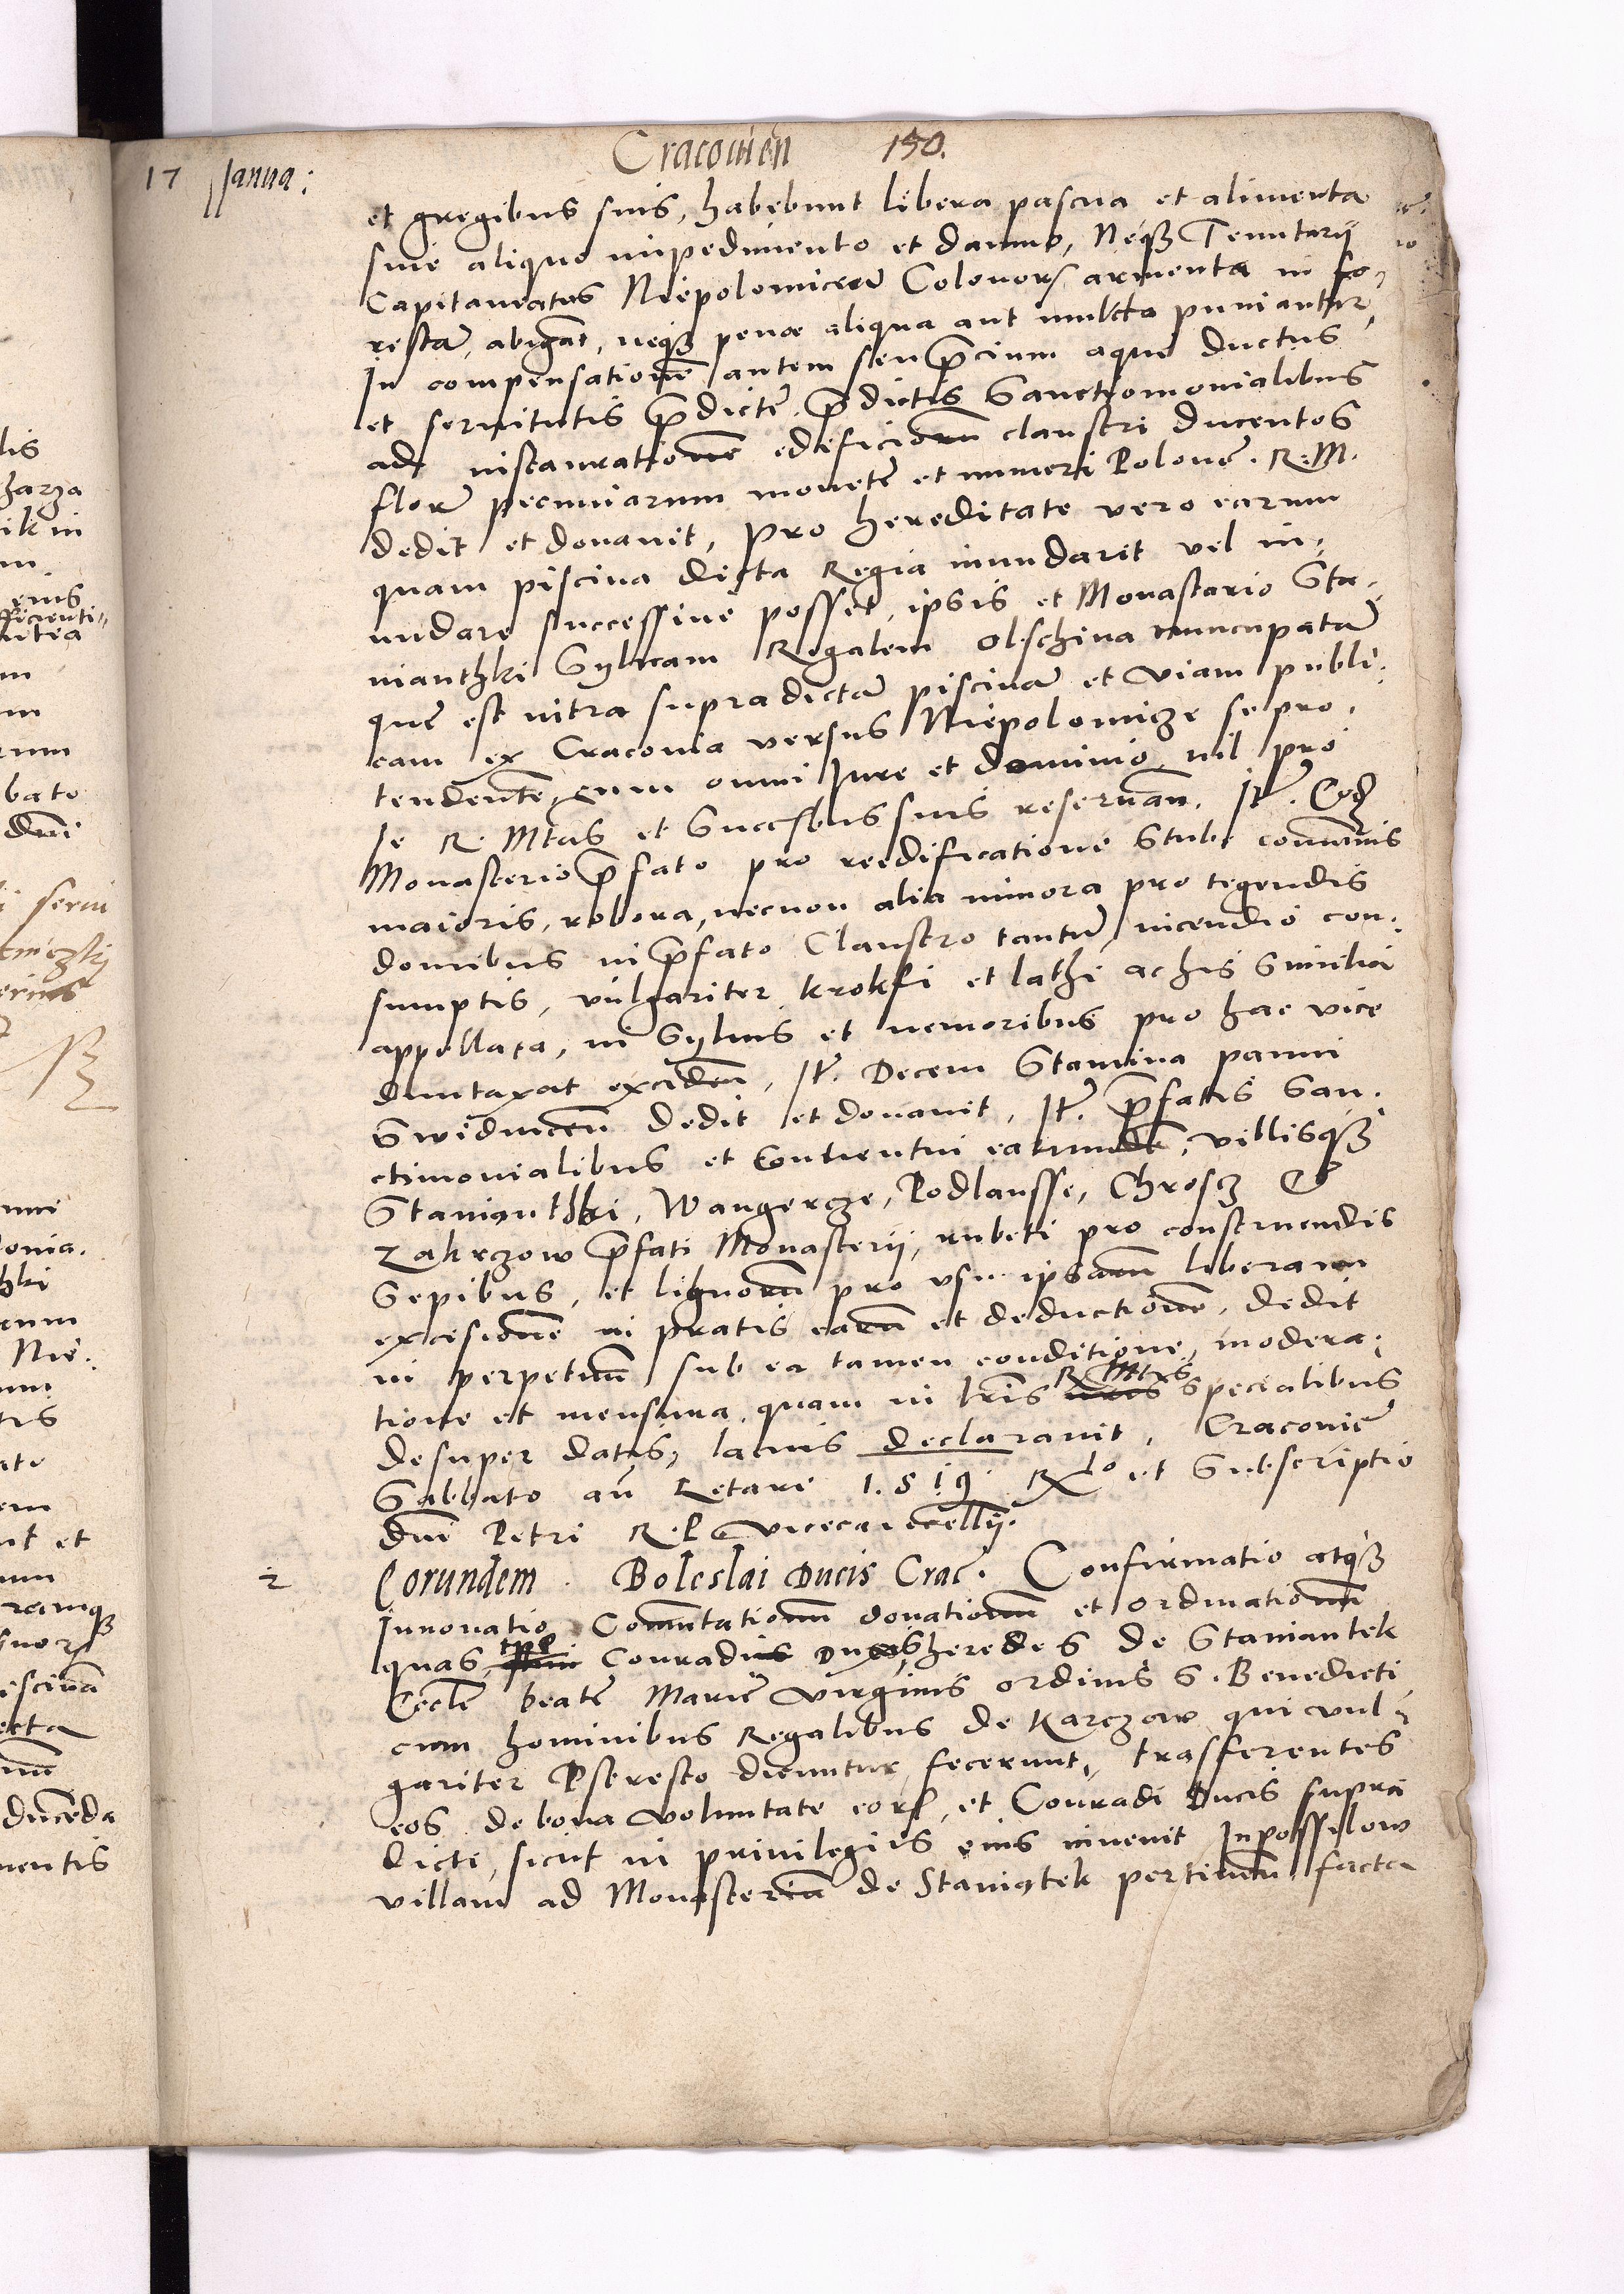 Cracouien 150.
17 Janua:
et gregibus suis, habebunt libera pascua et alimenta
sine aliquo impedimento et damno, Neqȝ Tenutarii
Capitaneatus Niepolomicen Colonorꝝ armenta in fo-
restã, abigãt, neqȝ pena aliqua aut mulcta puniantur,
In compensationẽ autem seu p̃cium aque ductus
et seruitutis p̃dictę, p̃dictis Sanctimonialibus
ad instaurationẽ edificiorũ claustri Ducentos
flor̃ pecuniarum monetę et numeri Polonę. R. M.
dedit et donauit, Pro hereditate vero earum
quam piscina dicta Regia inundarit vel in-
undare successiue posset, ipsis et Monasterio Sta-
nianthki Syluam Regalem Olschina nuncupatã
quę est intra supradictã piscinã et viam publi-
cam ex Cracouia versus Niepolomicze se pro-
tendentẽ, cum omni Jure et dominio, nil pro
se R. Mtas et Succesꝫbus suis reseruañ. It̃. Eođ
Monasterio p̃fato pro reedificatione Stubę cõmunis
maioris, robora, necnon alia minora pro tegendis
domibus in p̃fato Claustro tantũ, incendio con-
sumptis, vulgariter krokfi et lathi ac his similia
appellata, in syluis et nemoribus pro hac vice
duntaxat exciden, It̃. Decem Stamina panni
Swidnicen dedit et donauit, It̃. p̃fatis San-
ctimonialibus et Conuentui earundẽ, villisqȝ
Stanianthki, Wangercze, Podlansse, Chroscz &
Zakrzow p̃fati Monasterii, rubeti pro construendis
Sepibus, et lignorũ pro vsu ipsarũ liberam
excisionẽ in pratis earũ et deductionẽ, dedit
in perpetuũ sub ea tamen conditione, modera-
tione et mensura, quam in lr̃is R Mtis specialibus
desuper datis, latius declarauit, Cracouię
Sabbato añ Letare 1.5.19. Rlo et Subscriptio
dñi Petri R. P. vicecancellii.
2 Eorundem. Boleslai Ducis Crac. Confirmatio atqȝ
Innouatio Cõmutationũ donationũ et Ordinationũ
quas, tpe Conradus Dux, heredes de Staniantek
Eccłę beatę Marię virginis ordinis S. Benedicti
cum hominibus Regalibus de Karczow qui vul-
gariter Pseresto dicuntur fecerunt, trasferentes
eos de bona voluntate eorꝝ, et Conradi Ducis supra
dicti, sicut in priuilegiis eius inuenit In possilow
villam ad Monasteriũ de Staniątek pertineñ facta